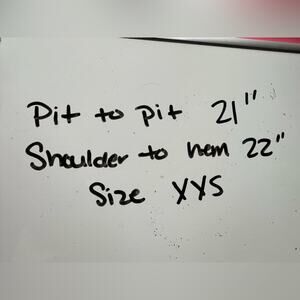 Pit to pit 21"
Shoulder to hem 22"
Size XXS